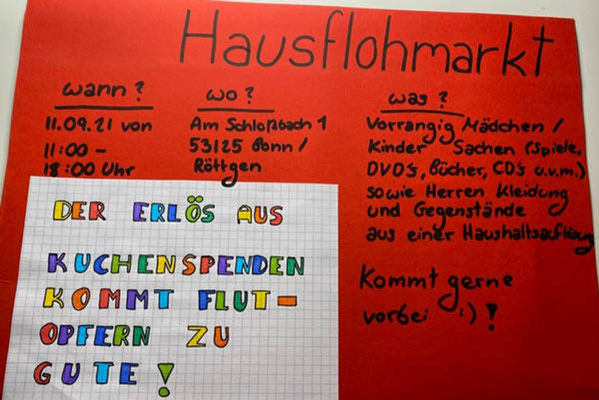 Hausflohmarkt
wann?
11.09.21 von
11:00 -
18:00 Uhr
wo?
Am Schloßbach 1
53125 Bonn /
Röttgen
was?
Vorrangig Mädchen /
Kinder Sachen (Spiele,
DVD's, Bücher, CD's u.v.m.)
sowie Herren Kleidung
und Gegenstände
aus einer Haushaltsauflösung
Kommt gerne
vorbei :)!
DER ERLÖS AUS
KUCHENSPENDEN
KOMMT FLUT-
OPFERN ZU
GUTE!